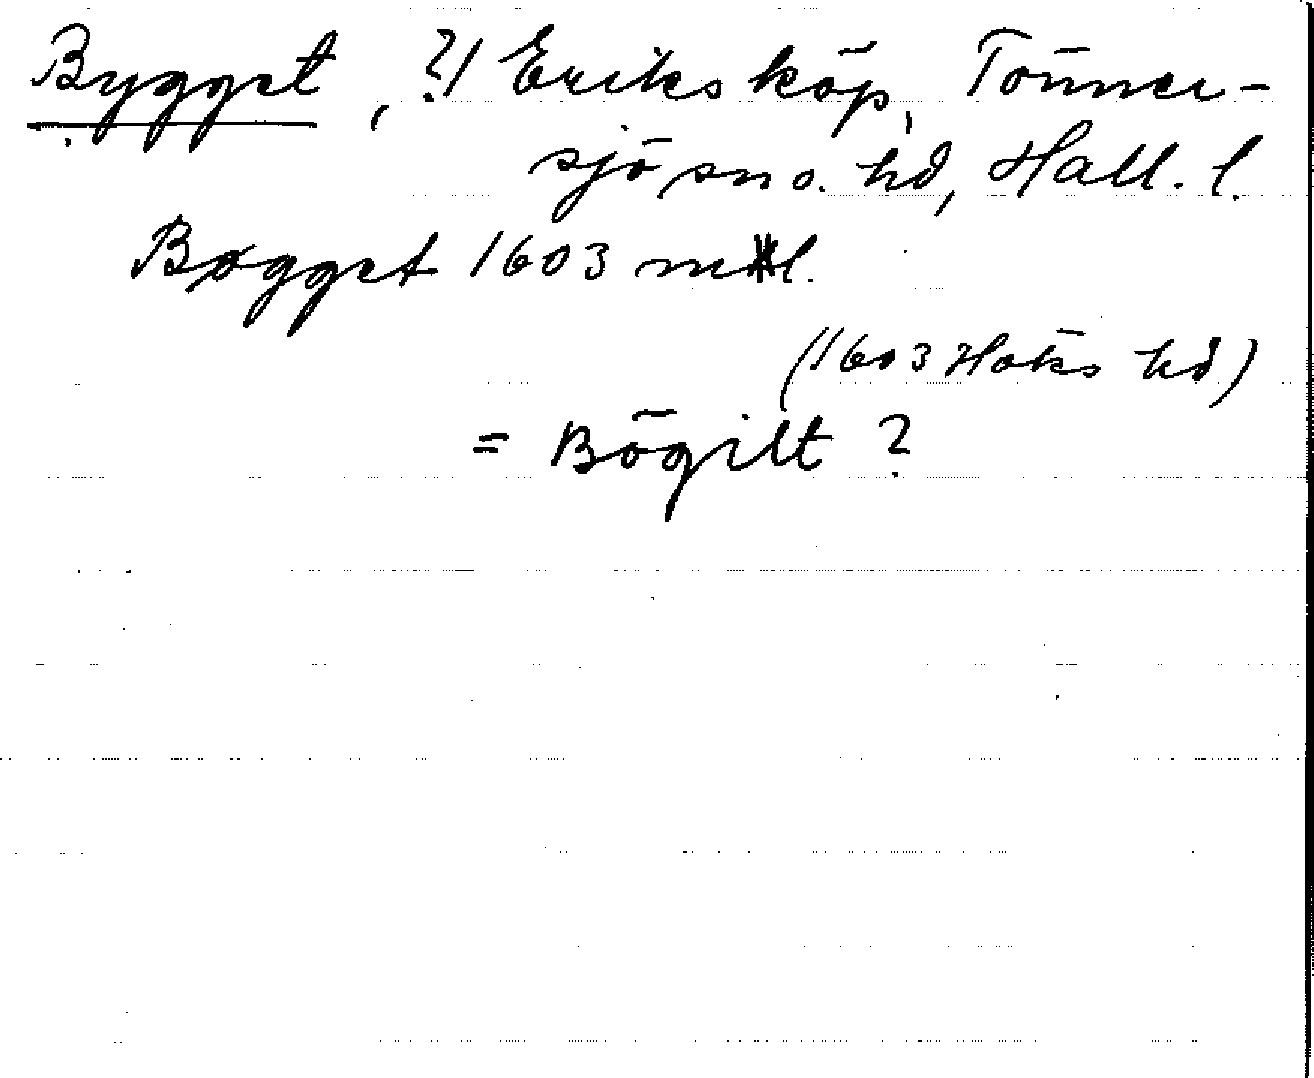 Bygget, ?/ Eriksköp, Tönner-
sjö sn o. hd, Hall. l.
Bøgget 1603 mtl.
(1603 Höks hd)
= Bögilt ?